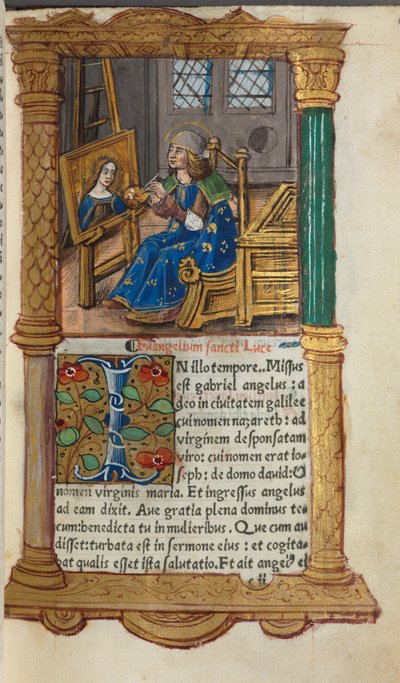 Euangelium sancti Luce
IN illo tempore.. Missus
est gabriel angelus : a
deo in ciuitatem galilee
cui nomen nazareth : ad
virginem desponsatam
viro: cui nomen erat io-
seph: de domo dauid: &
nomen virginis maria. Et ingressus angelus
ad eam dixit. Aue gratia plena dominus te
cum: benedicta tu in mulieribus. Que cum au
disset: turbata est in sermone eius : et cogita
bat qualis esset ista salutatio. Et ait angel⁹ ei